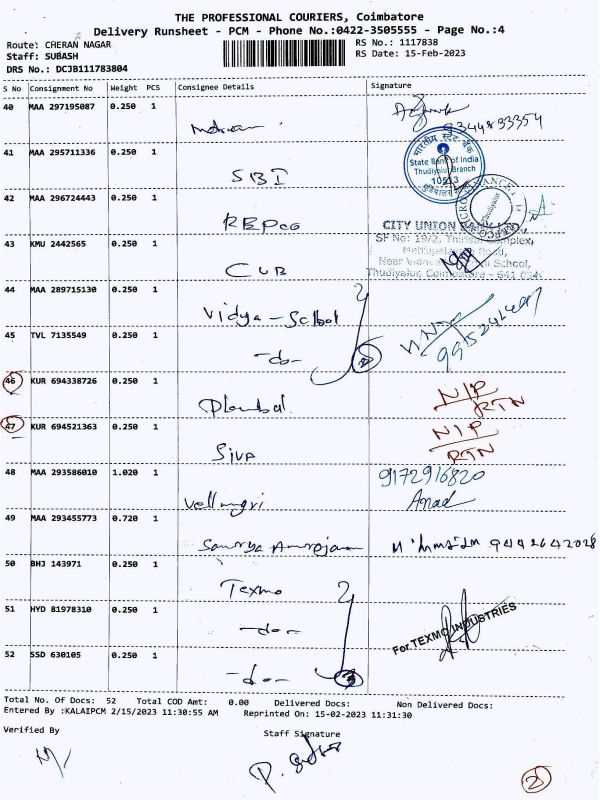 THE PROFESSIONAL COURIERS, Coimbatore
Delivery Runsheet - PCM - Phone No.:0422-3505555 - Page No.:4
Route: CHERAN NAGAR
Staff: SUBASH
DRS No.: DCJB111783804
RS No.: 1117838
RS Date: 15-Feb-2023
S No Consignment No Weight PCS Consignee Details Signature
40 MAA 297195087 0.250 1
9344833354
41 MAA 295711336 0.250 1 SBI
भारतीय स्टेट बैंक
State Bank of India
Thudiyalur Branch
10513
42 MAA 296724443 0.250 1 REPCO
Thudiyalur
43 KMU 2442565 0.250 1 CUB
CITY UNION
SF No: 19/2, Thirisal Complex,
Near School,
Thudiyalur, Coimbatore - 641 034.
44 MAA 289715130 0.250 1 Vidya - School
45 TVL 7135549 0.250 1 -do-
46 KUR 694338726 0.250 1
N/P
RTN
47 KUR 694521363 0.250 1 Siva
N/P
RTN
48 MAA 293586010 1.020 1 Vellingri
9172916820
Anad
49 MAA 293455773 0.720 1
9442642028
50 BHJ 143971 0.250 1 Texmo
51 HYD 81978310 0.250 1 -do-
For TEXMO INDUSTRIES
52 SSD 630105 0.250 1 -do-
3
Total No. Of Docs: 52 Total COD Amt: 0.00 Delivered Docs: Non Delivered Docs:
Entered By :KALAIPCM 2/15/2023 11:30:55 AM Reprinted On: 15-02-2023 11:31:30
Verified By Staff Signature
2